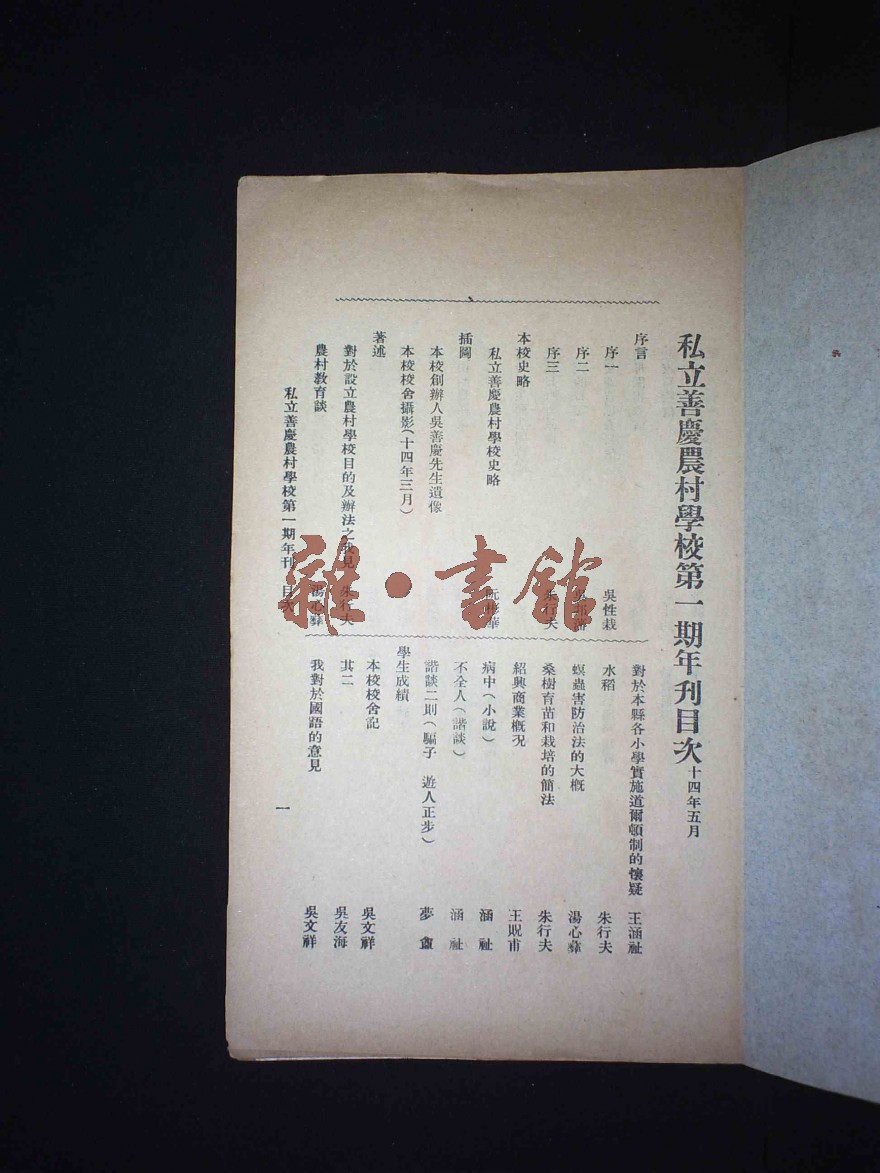 私立善慶農村學校第一期年刊目次 十四年五月
序言
序一 吳性栽
序二
序三 朱行夫
本校史略
私立善慶農村學校史略
插圖
本校創辦人吳善慶先生遺像
本校校舍攝影(十四年三月)
著述
對於設立農村學校目的及辦法之我見 朱行夫
農村教育談 湯心彝
對於本縣各小學實施道爾頓制的懷疑 王涵祉
水稻 朱行夫
螟蟲害防治法的大概 湯心彝
桑樹育苗和栽培的簡法 朱行夫
紹興商業概况 王貺甫
病中(小說) 涵祉
不全人(諧談) 涵祉
諧談二則(騙子 遊人正步) 夢
學生成績
本校校舍記 吳文祥
其二 吳友海
我對於國語的意見 吳文祥
私立善慶農村學校第一期年刊 目次
一
雜·書館